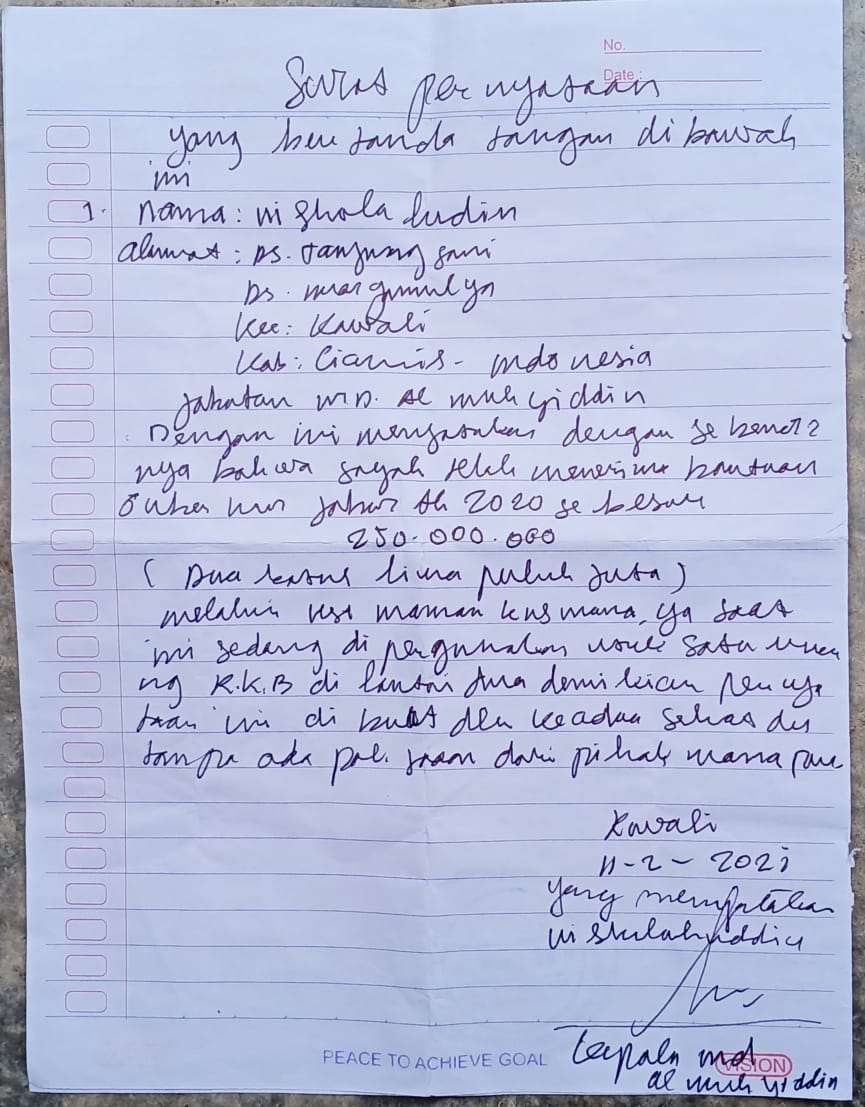 No.
Date :
Surat pernyataan
yang ber tanda tangan di bawah
ini
1. nama : ui Shola hudin
alamat : Ds. tanjung sari
Ds. margamulya
Kec : Kawali
Kab : Ciamis - indonesia
jabatan M.D. Al muh yiddin
Dengan ini menyatakan dengan se benar2
nya bahwa sayah telah menerima bantuan
jabar th 2020 se besar
250.000.000
( Dua ratus lima puluh juta )
melalui maman kusmana, ya saat
ini sedang di pergunakan satu
ng R.K.B di lantai dua demikian peny
taan ini di buat dlm keadaan
tanpa ada pak saan dari pihak mana pun
Kawali
11-2-2021
yang menyatakan
ui Sholahuddin
kepala md
al muh yiddin
PEACE TO ACHIEVE GOAL
VISION